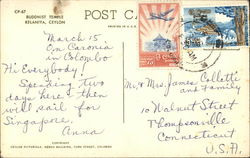 CP-67
BUDDHIST TEMPLE
KELANIYA, CEYLON
POST CA
March 15
On Caronia
in Colombo
Hi Everybody!
Spending two
days here & then
will sail for
Singapore.
Anna
Mr & Mrs. James Colletti
and Family
10 Walnut Street
Thompsonville
Connecticut
U.S.A.
CEYLON PICTORIALS, NEGRIS BUILDING, YORK STREET, COLOMBO